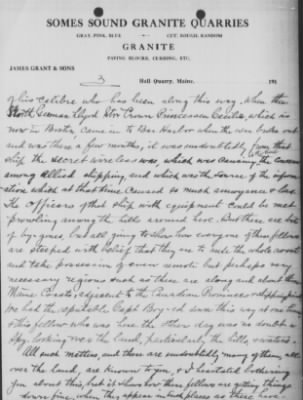 SOMES SOUND GRANITE QUARRIES
GRAY, PINK, BLUE CUT, ROUGH, RANDOM
GRANITE
PAVING BLOCKS, CURBING, ETC.
JAMES GRANT & SONS
3 Hall Quarry, Maine. 191
of his calibre who has been along this way. When the
North German Lloyd Str Crown Princessen Cecilie, which is
now in Boston, came in to Bar Harbor when the war broke out
and was there a few months, it was undoubtedly from that
ship the secret wireless was, which was causing the
among Allied shipping, and which was the source of the inform-
ation which at that time caused so much annoyance & loss.
The Officers of that ship with equipment could be met
prowling among the hills around here. But these are but
of by-gones, but all going to show how everyone of these fellows
are steeped with belief that they are to rule the whole world
and take possession of even remote but perhaps very
necessary regions such as these are along and about the
Maine Coast, adjacent to the Canadian Provinces
for had the reputable Capt Boy-ed down this way at one time
& this fellow who was here the other day was no doubt a
Spy, looking over the land, particularly the hills, & waters.
All such matters, and there are undoubtedly many of them, all
over the land, are known to you, & I hesitated bothering
you about this, but it shows how these fellows are getting things
down fine, when they appear in such places as these have